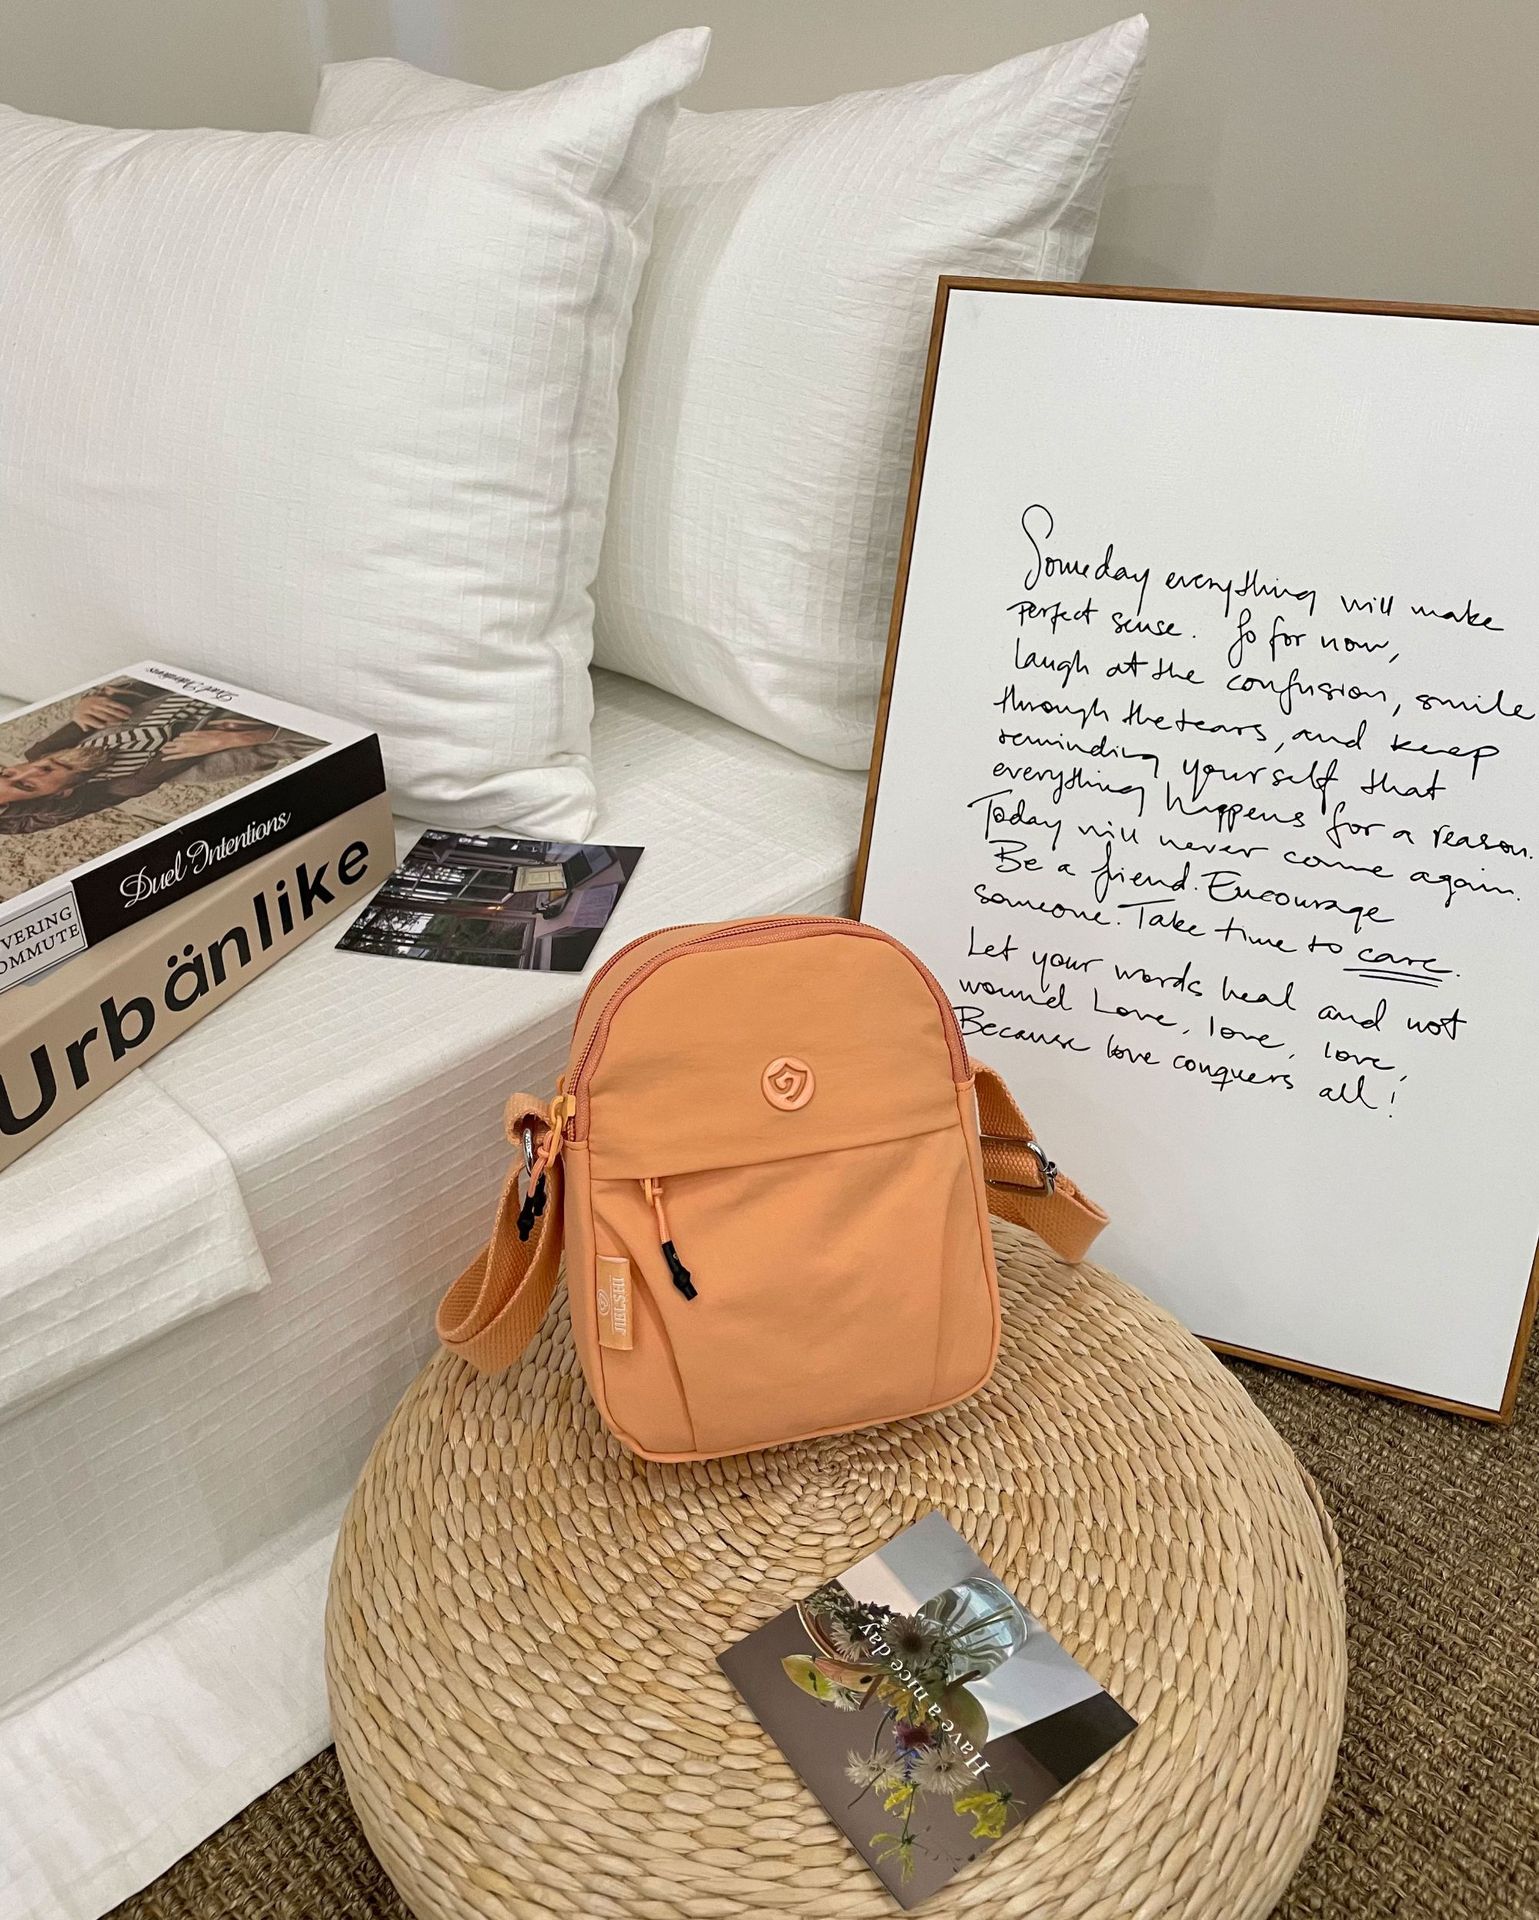 Someday everything will make
perfect sense. So for now,
laugh at the confusion, smile
through the tears, and keep
reminding yourself that
everything happens for a reason.
Today will never come again.
Be a friend. Encourage
someone. Take time to care.
Let your words heal and not
wound Love, love, love,
Because love conquers all!
Duel Intentions
Duel Intentions
VERING
OMMUTE
Urbänlike
JIELSHI
Have a nice day